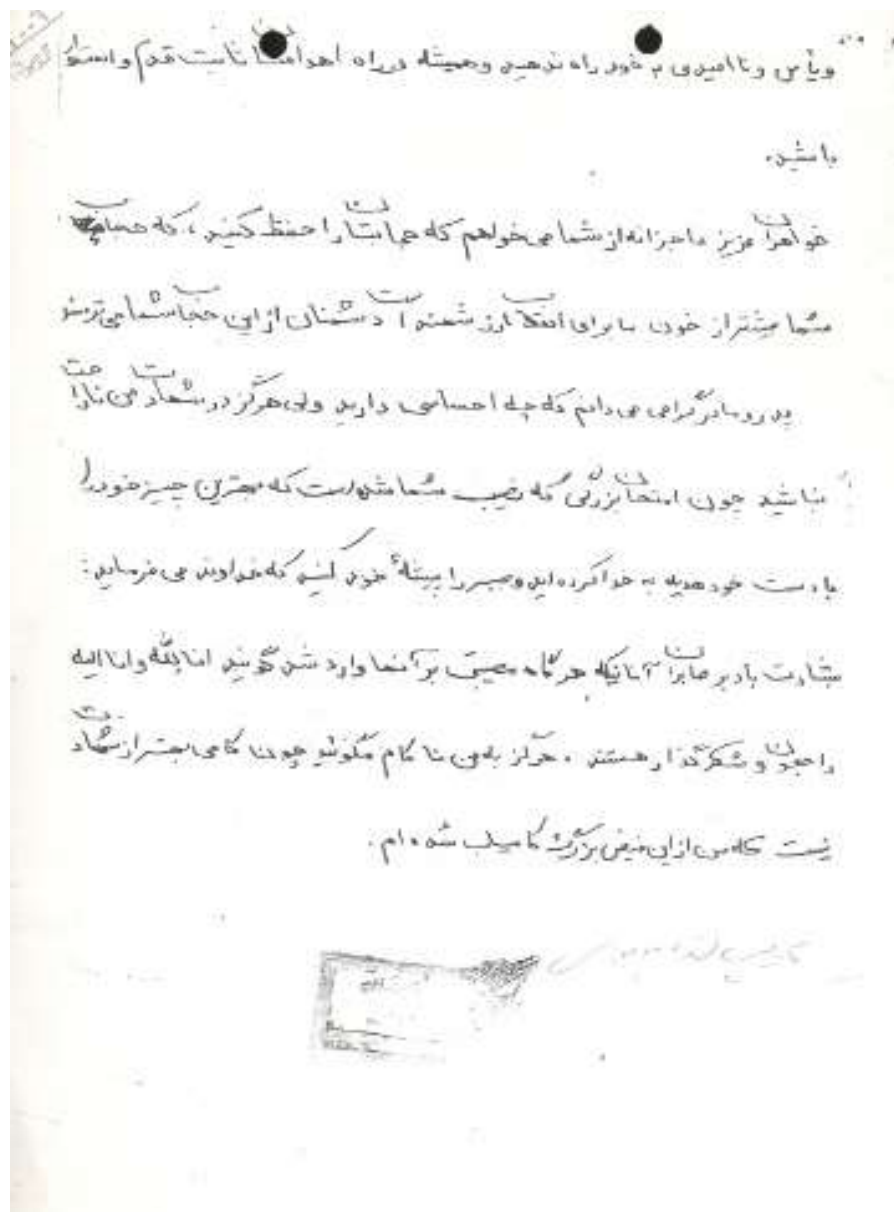 ویأس و ناامیدی به خود راه ندهید و همیشه در راه اهدافتان ثابت قدم و استوار
باشید.
خواهران عزیز عاجزانه از شما می خواهم که حجابتان را حفظ کنید، که حجاب
شما بیشتر از خون ما برای انقلاب ارزشمند است دشمنان از این حجاب شما می ترسند
پدر و مادر گرامی می دانم که چه احساسی دارید ولی هرگز در شهادت من ناراحت
نباشید چون امتحان بزرگی که نصیب شما شده است که بهترین چیز خود را
با دست خود هدیه به خدا کرده اید و صبر را پیشهٔ خود کنید که خداوند می فرماید:
بشارت باد بر صابران آنانیکه هرگاه مصیبتی بر آنها وارد شد گویند انا لله و انا الیه
راجعون و شکرگذار هستند. هرگز به من ناکام مگوئید چون کامی بهتر از شهادت
نیست که من از این فیض بزرگ کامیاب شده ام.